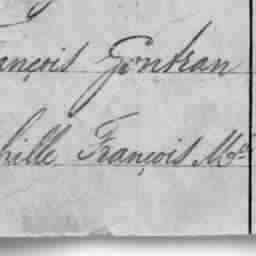 ançois Gontran
hille François M